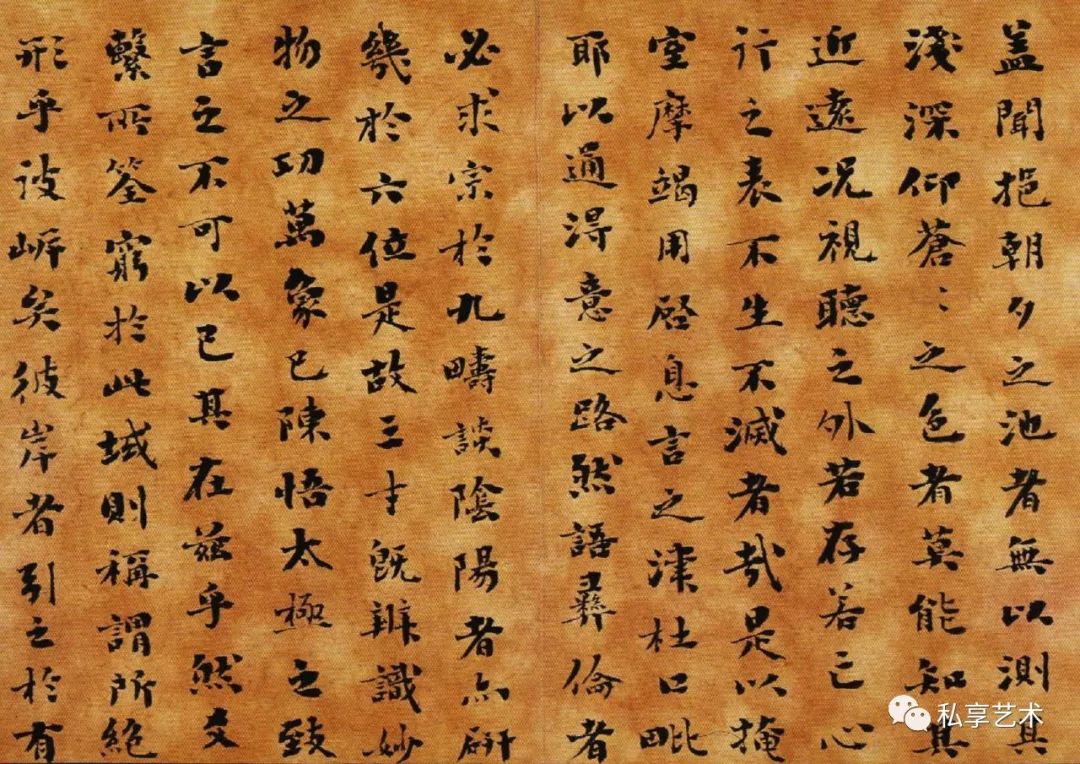 盖聞挹朝夕之池者無以測其
淺深仰蒼〻之色者莫能知其
近遠況視聽之外若存若亡心
行之表不生不滅者哉是以掩
室摩竭用啓息言之津杜口毗
耶以通得意之路然語彝倫者
必求宗於九疇談陰陽者亦研
幾於六位是故三才既辨識妙
物之功萬象已陳悟太極之致
言之不可以已其在茲乎然爻
繫所筌窮於此域則稱謂所絕
形乎彼岸矣彼岸者引之於有
私享艺术